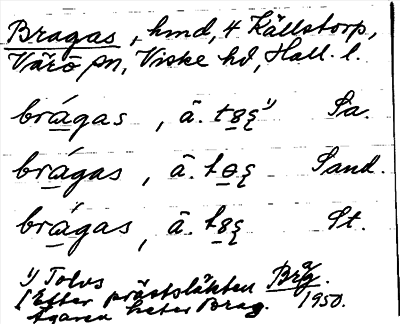 Bragas, hmd, 4 Källstorp,
Värö sn, Viske hd, Hall. l.
brágas, ä. tɞξ ¹) Sa.
brágas, ä. tɵξ Sand.
brágas, ä. tɞξ St.
1) Tolvs
Efter prästsläkten Brag.
Ägaren heter Brag. 1950.